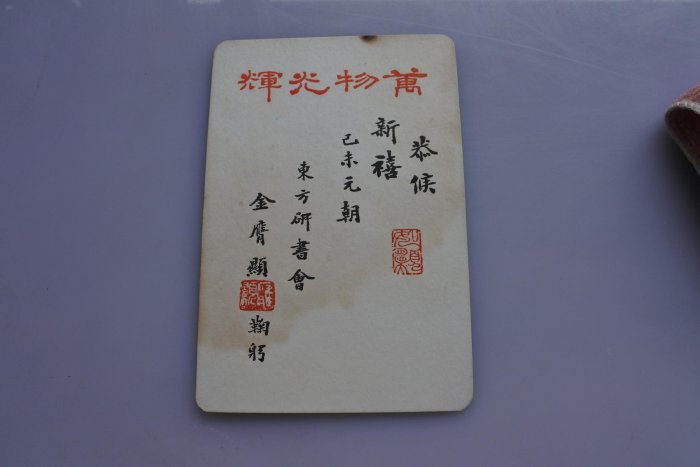 萬物光輝
恭候
新禧
己未元朝
東方研書會
金膺顯
鞠躬